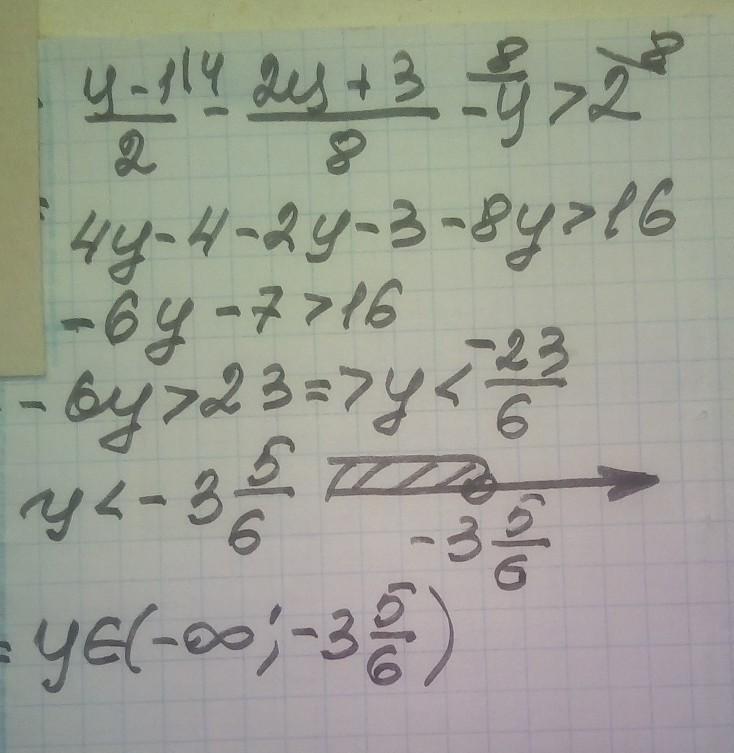 (y-1)/2 |4 - (2y+3)/8 - y |8 > 2 |8
4y-4-2y-3-8y>16
-6y-7>16
-6y>23 => y < -23/6
y < -3 5/6
-3 5/6
y∈(-∞; -3 5/6)